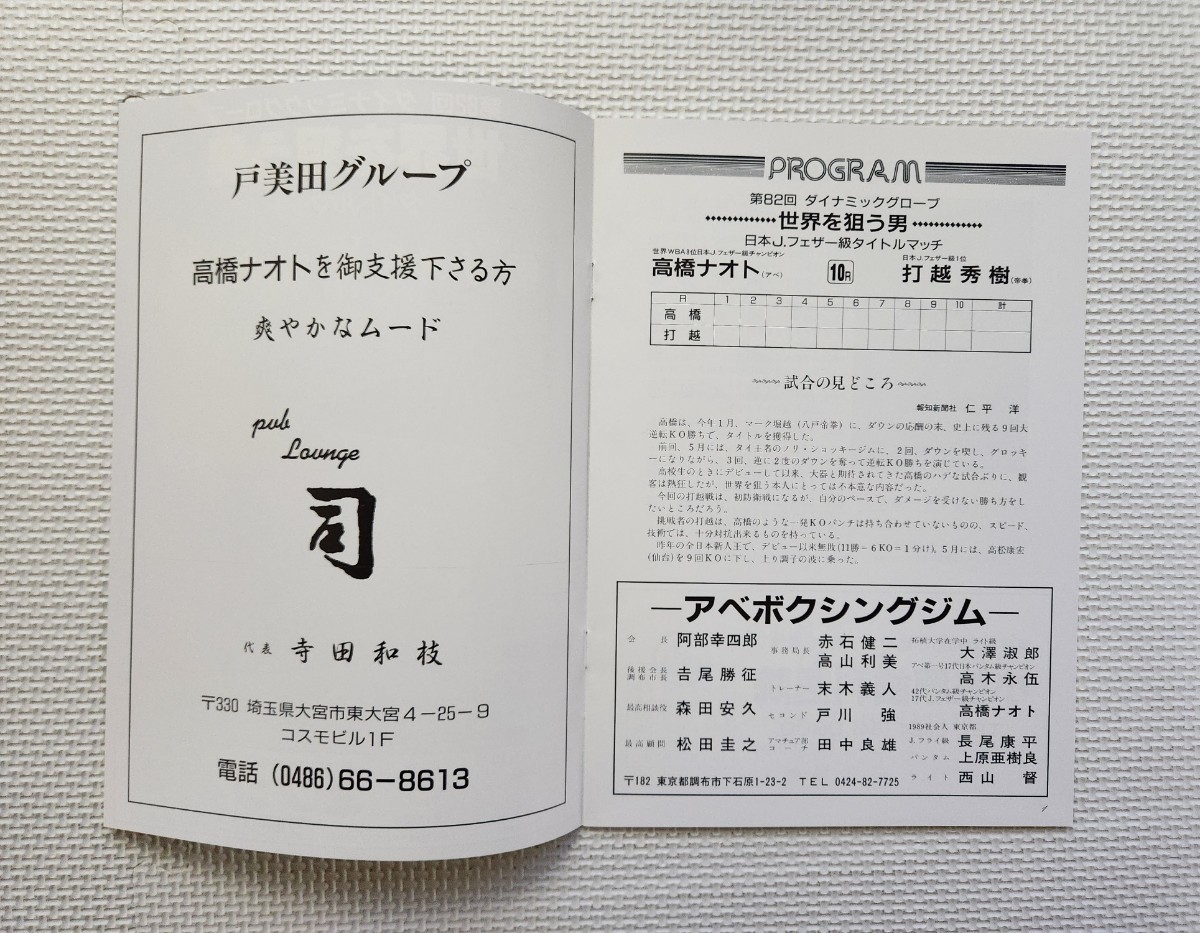 戸美田グループ
高橋ナオトを御支援下さる方
爽やかなムード
pub
Lounge
司
代表 寺田和枝
〒330 埼玉県大宮市東大宮4-25-9
コスモビル1F
電話 (0486)66-8613
PROGRAM
第82回 ダイナミックグローブ
世界を狙う男
日本J.フェザー級タイトルマッチ
日本J.フェザー級チャンピオン
高橋ナオト(アベ)
10R
日本J.フェザー級1位
打越秀樹(帝拳)
R 1 2 3 4 5 6 7 8 9 10 計
高橋
打越
試合の見どころ
報知新聞社 仁平 洋
高橋は、今年1月、マーク堀越(八戸帝拳)に、ダウンの応酬の末、史上に残る9回大
逆転KO勝ちで、タイトルを獲得した。
前回、5月には、タイ王者のノリ・ショッキージムに、2回、ダウンを喫し、グロッキ
ーになりながら、3回、逆に2度のダウンを奪って逆転KO勝ちを演じている。
高校生のときにデビューして以来、大器と期待されてきた高橋のハデな試合ぶりに、観
客は熱狂したが、世界を狙う本人にとっては不本意な内容だった。
今回の打越戦は、初防衛戦になるが、自分のペースで、ダメージを受けない勝ち方をし
たいところだろう。
挑戦者の打越は、高橋のような一発KOパンチは持ち合わせていないものの、スピード、
技術では、十分対抗出来るものを持っている。
昨年の全日本新人王で、デビュー以来無敗(11勝=6KO=1分け)。5月には、高松康宏
(仙台)を9回KOに下し、上り調子の波に乗った。
―アベボクシングジム―
会長 阿部幸四郎
後援会長
調布市長 吉尾勝征
最高相談役 森田安久
最高顧問 松田圭之
事務局長 赤石健二
高山利美
トレーナー 末木義人
セコンド 戸川 強
アマチュア部
コーチ 田中良雄
拓殖大学在学中 ライト級
大澤淑郎
アベ第一号17代日本バンタム級チャンピオン
高木永伍
42代バンタム級チャンピオン
17代J.フェザー級チャンピオン
高橋ナオト
1989社会人 東京都
J.フライ級 長尾康平
バンタム 上原亜樹良
ライト 西山 督
〒182 東京都調布市下石原1-23-2 TEL 0424-82-7725
1